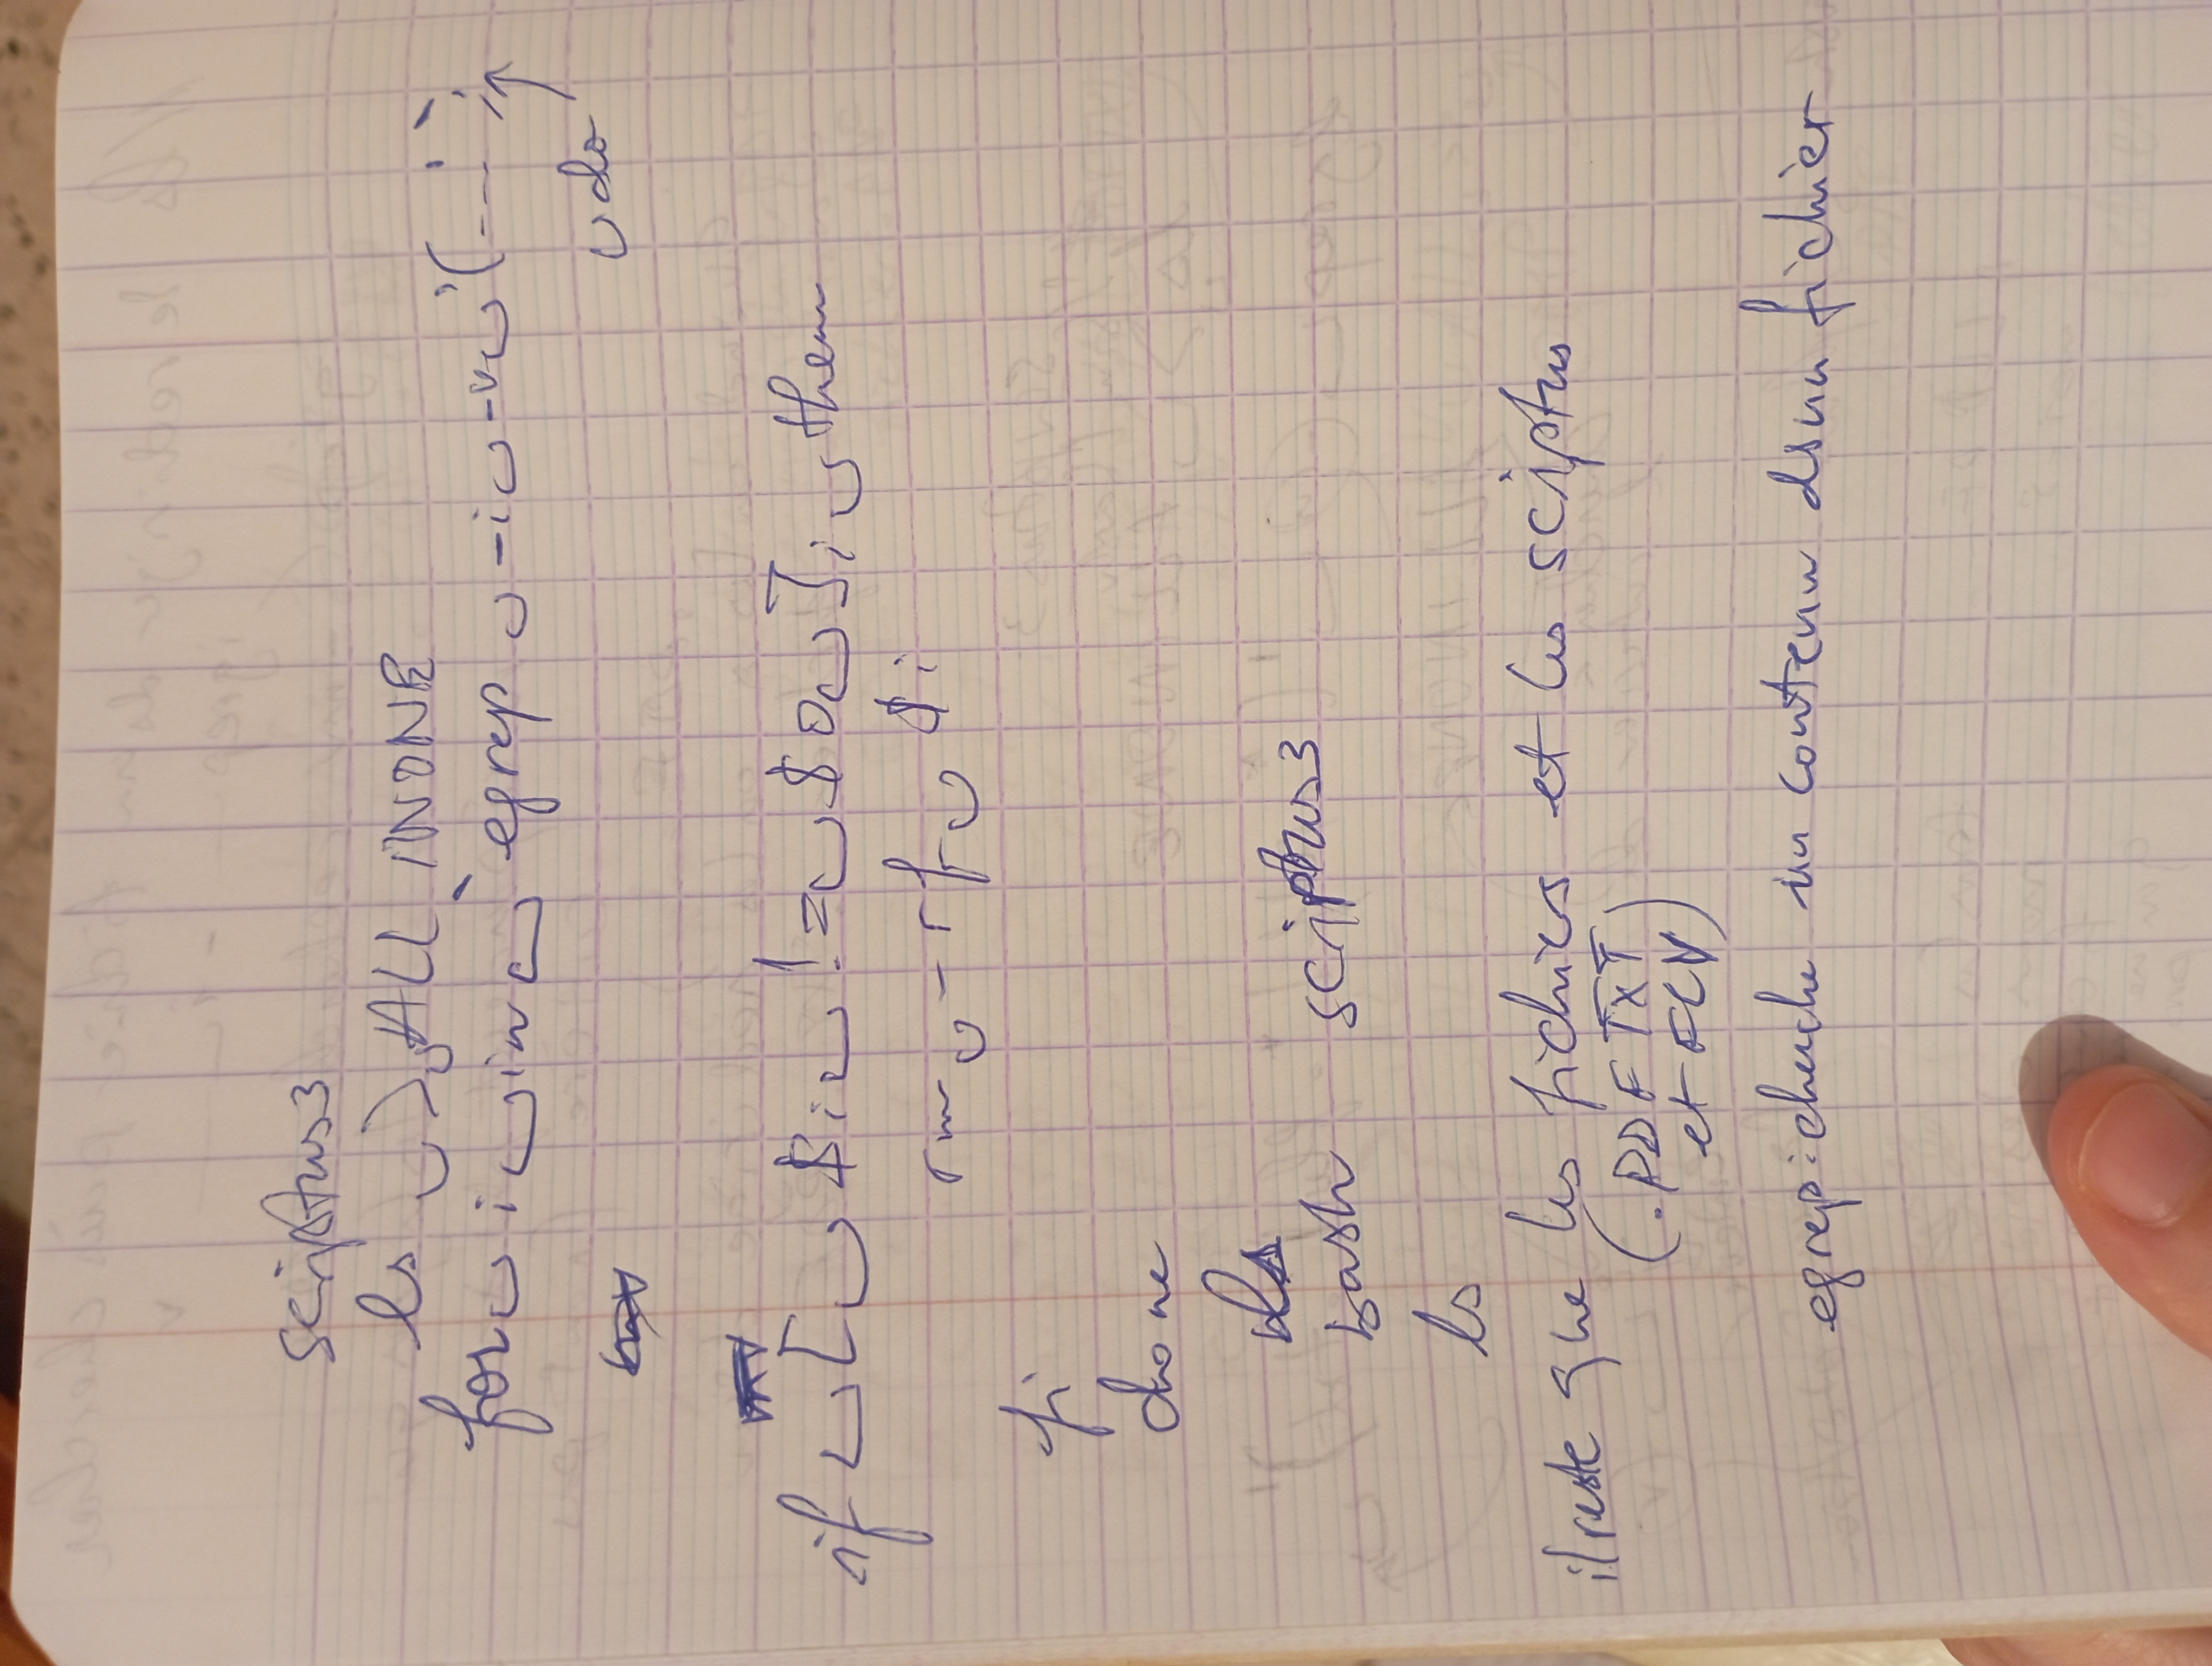 scriptus3
ls ␣ >␣ALLINONE
for␣i␣in␣`egrep␣-i␣-v␣'(---'`;
␣do
if␣[␣$i␣!=␣$0␣];␣then
rm␣-rf␣$i
fi
done
bash scriptus3
ls
il reste que les fichiers et les scriptus
(.PDF TXT
et ECN)
egrep: cherche un contenu dsun fichier